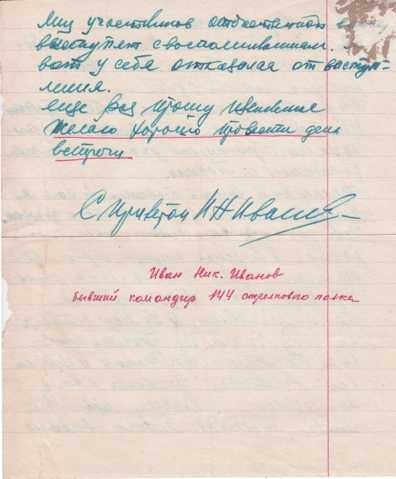 из участников
выступят с воспоминаниями.
вот у себя отказался от выступ-
ления.
еще раз прошу извинение
желаю хорошо провести день
встречи
С приветом И Н Иванов
Иван Ник. Иванов
бывший командир 144 стрелкового полка